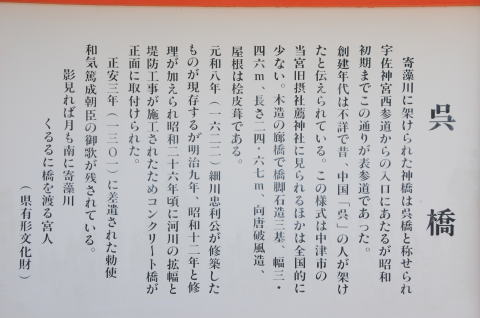 呉橋
寄藻川に架けられた神橋は呉橋と称せられ
宇佐神宮西参道からの入口にあたるが昭和
初期までこの通りが表参道であった。
創建年代は不詳で昔、中国「呉」の人が架け
たと伝えられている。この様式は中津市の
当宮旧摂社薦神社に見られるほかは全国的に
少ない。木造の廊橋で橋脚石造三基、幅三・
四六m、長さ二四・六七m、向唐破風造、
屋根は桧皮葺である。
元和八年（一六二二）細川忠利公が修築した
ものが現存するが明治九年、昭和十二年と修
理が加えられ昭和二十六年頃に河川の拡幅と
堤防工事が施工されたためコンクリート橋が
正面に取付けられた。
正安三年（一三〇一）に差遣された勅使
和気篤成朝臣の御歌が残されている。
影見れば月も南に寄藻川
くるるに橋を渡る宮人
（県有形文化財）